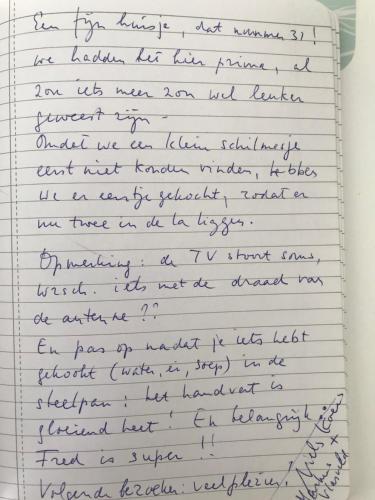 Een fijn huisje, dat nummer 31!
We hadden het hier prima, al
zou iets meer zon wel leuker
geweest zijn -
Omdat we een klein schilmesje
eerst niet konden vinden, hebben
we er eentje gekocht, zodat er
nu twee in de la liggen.
Opmerking: de TV stoort soms,
wrsch. iets met de draad van
de antenne??
En pas op nadat je iets hebt
gekookt (water, ei, soep) in de
steelpan: het handvat is
gloeiend heet! En belangrijk
Fred is super!!
Volgende bezoeker: veel plezier!